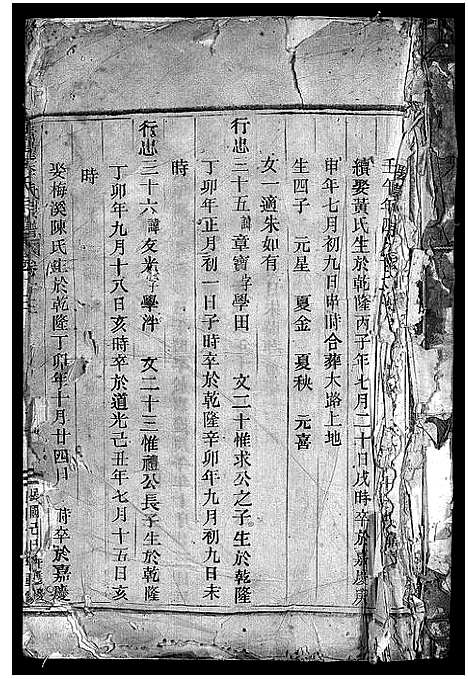 壬午年
續娶黃氏生於乾隆丙子年七月二十日戌時卒於嘉慶庚
申年七月初九日申時合葬大路上地
生四子 元星 夏金 夏秧 元喜
女一適朱如有
行忠三十五諱章寶字學田 文二十惟求公之子生於乾隆
丁卯年正月初一日子時卒於乾隆辛卯年九月初九日未
時
行忠三十六諱友光字學泮 文二十三惟禮公長子生於乾隆
丁卯年九月十八日亥時卒於道光己丑年七月十五日亥
時
娶梅溪陳氏生於乾隆丁卯年十月廿四日 時卒於嘉慶
民國